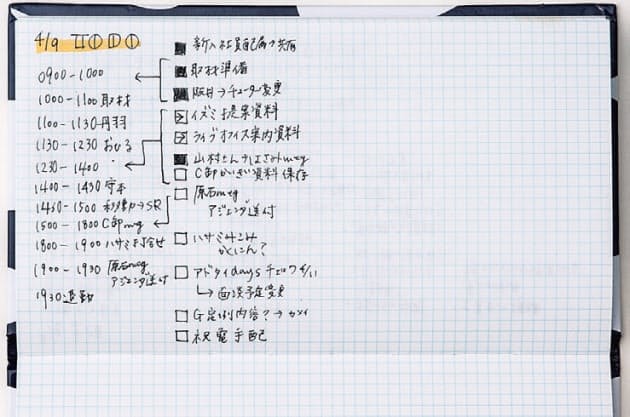 4/9
0900-1000
1000-1100 取材
1100-1130 丹羽
1130-1230 おひる
1230-1400
1400-1430 守本
1430-1500 移動→SR
1500-1800 C卸mtg
1800-1900 ハサミ打合せ
1900-1930 原石mtg
アジェンダ送付
1930 退勤
新入社員配属→共有
取材準備
→チューター変更
イズミ提案資料
ライブオフィス案内資料
山村さんはさみmtg
C卸 資料保存
原石mtg
アジェンダ送付
ハサミ
かくにん?
アドタイdays
→面談予定変更
G定例内容?→
祝電手配